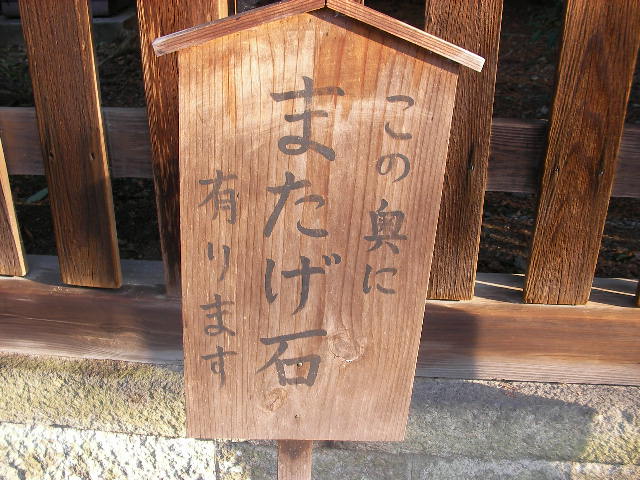 この奥に
またげ石
有ります